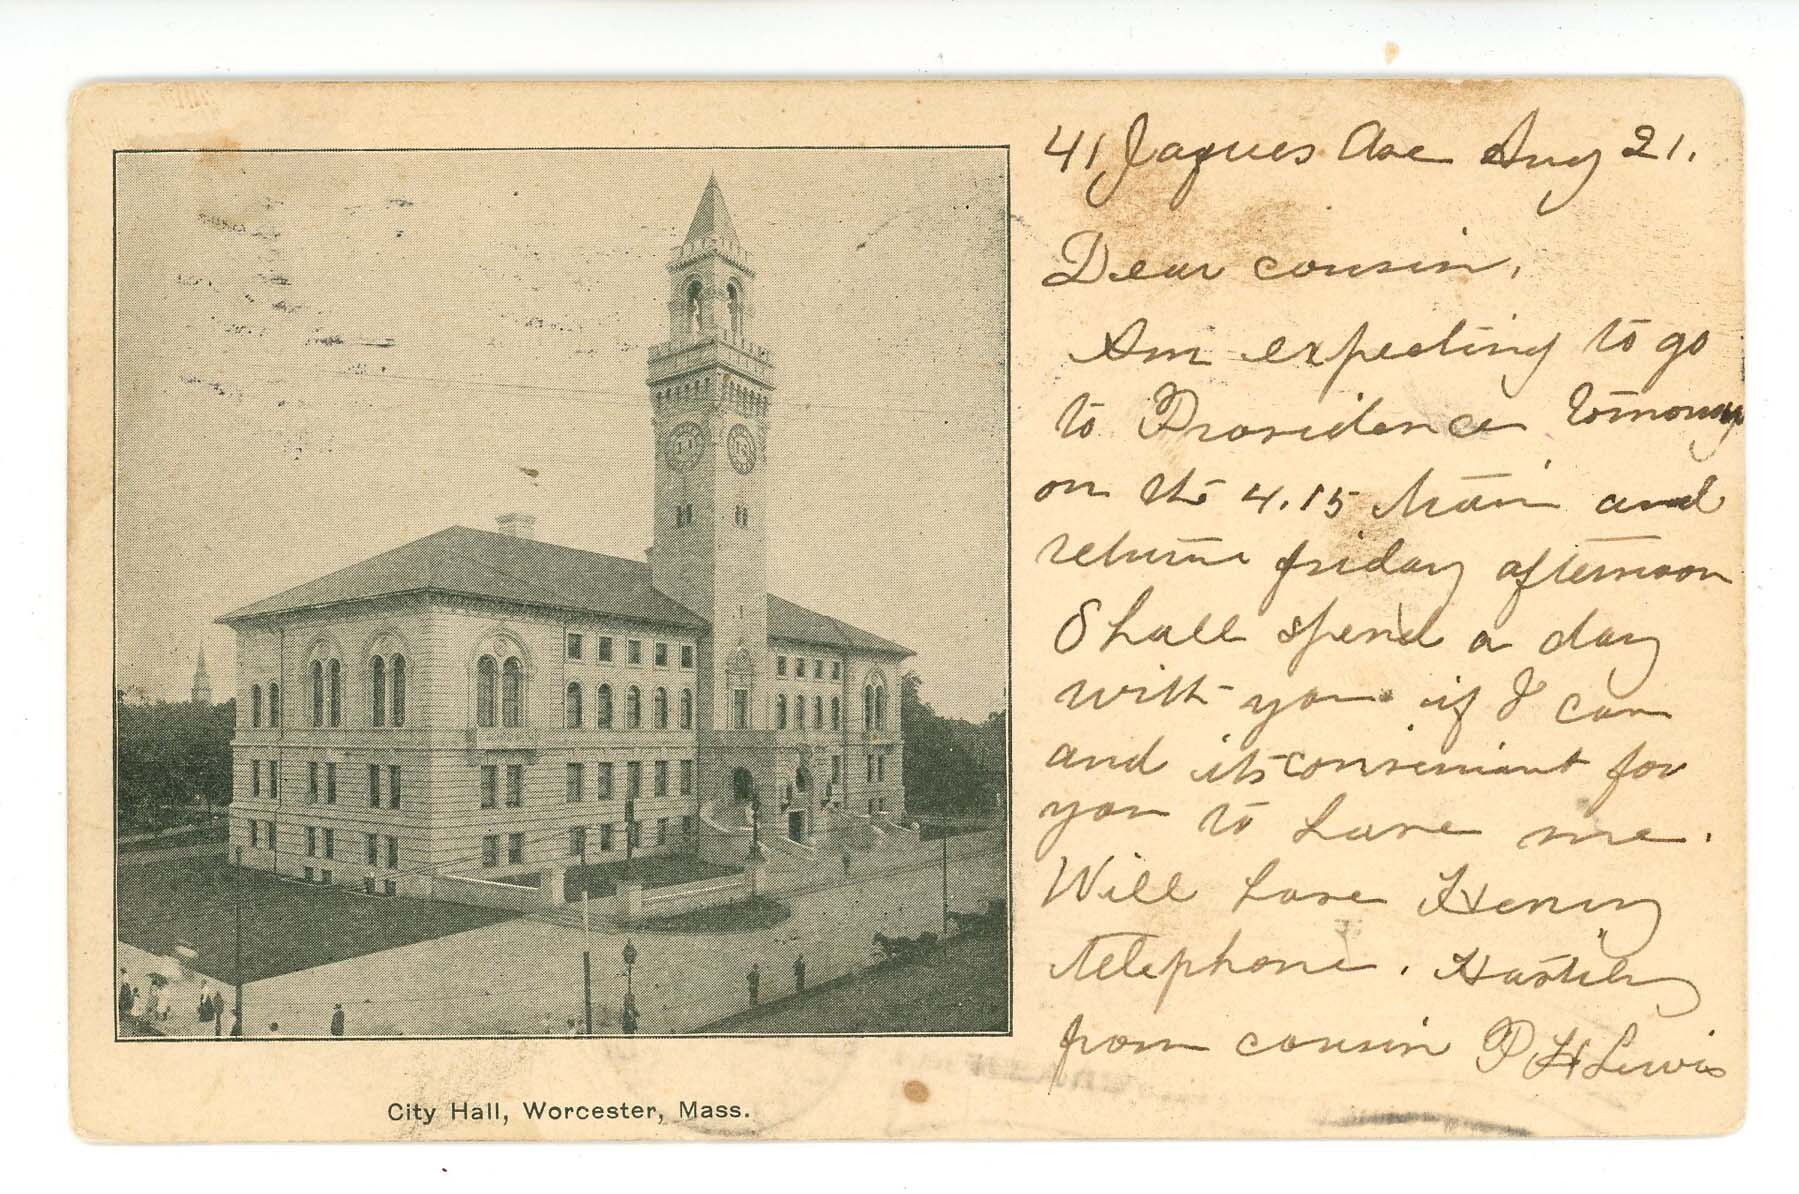 41 Jaques Ave Aug 21.
Dear cousin,
Am expecting to go
to Providence tomorrow
on the 4.15 train and
return friday afternoon
Shall spend a day
with you if I can
and its conveniant for
you to have me.
Will have Henry
telephone. Hastily
from cousin P H Lewis
City Hall, Worcester, Mass.